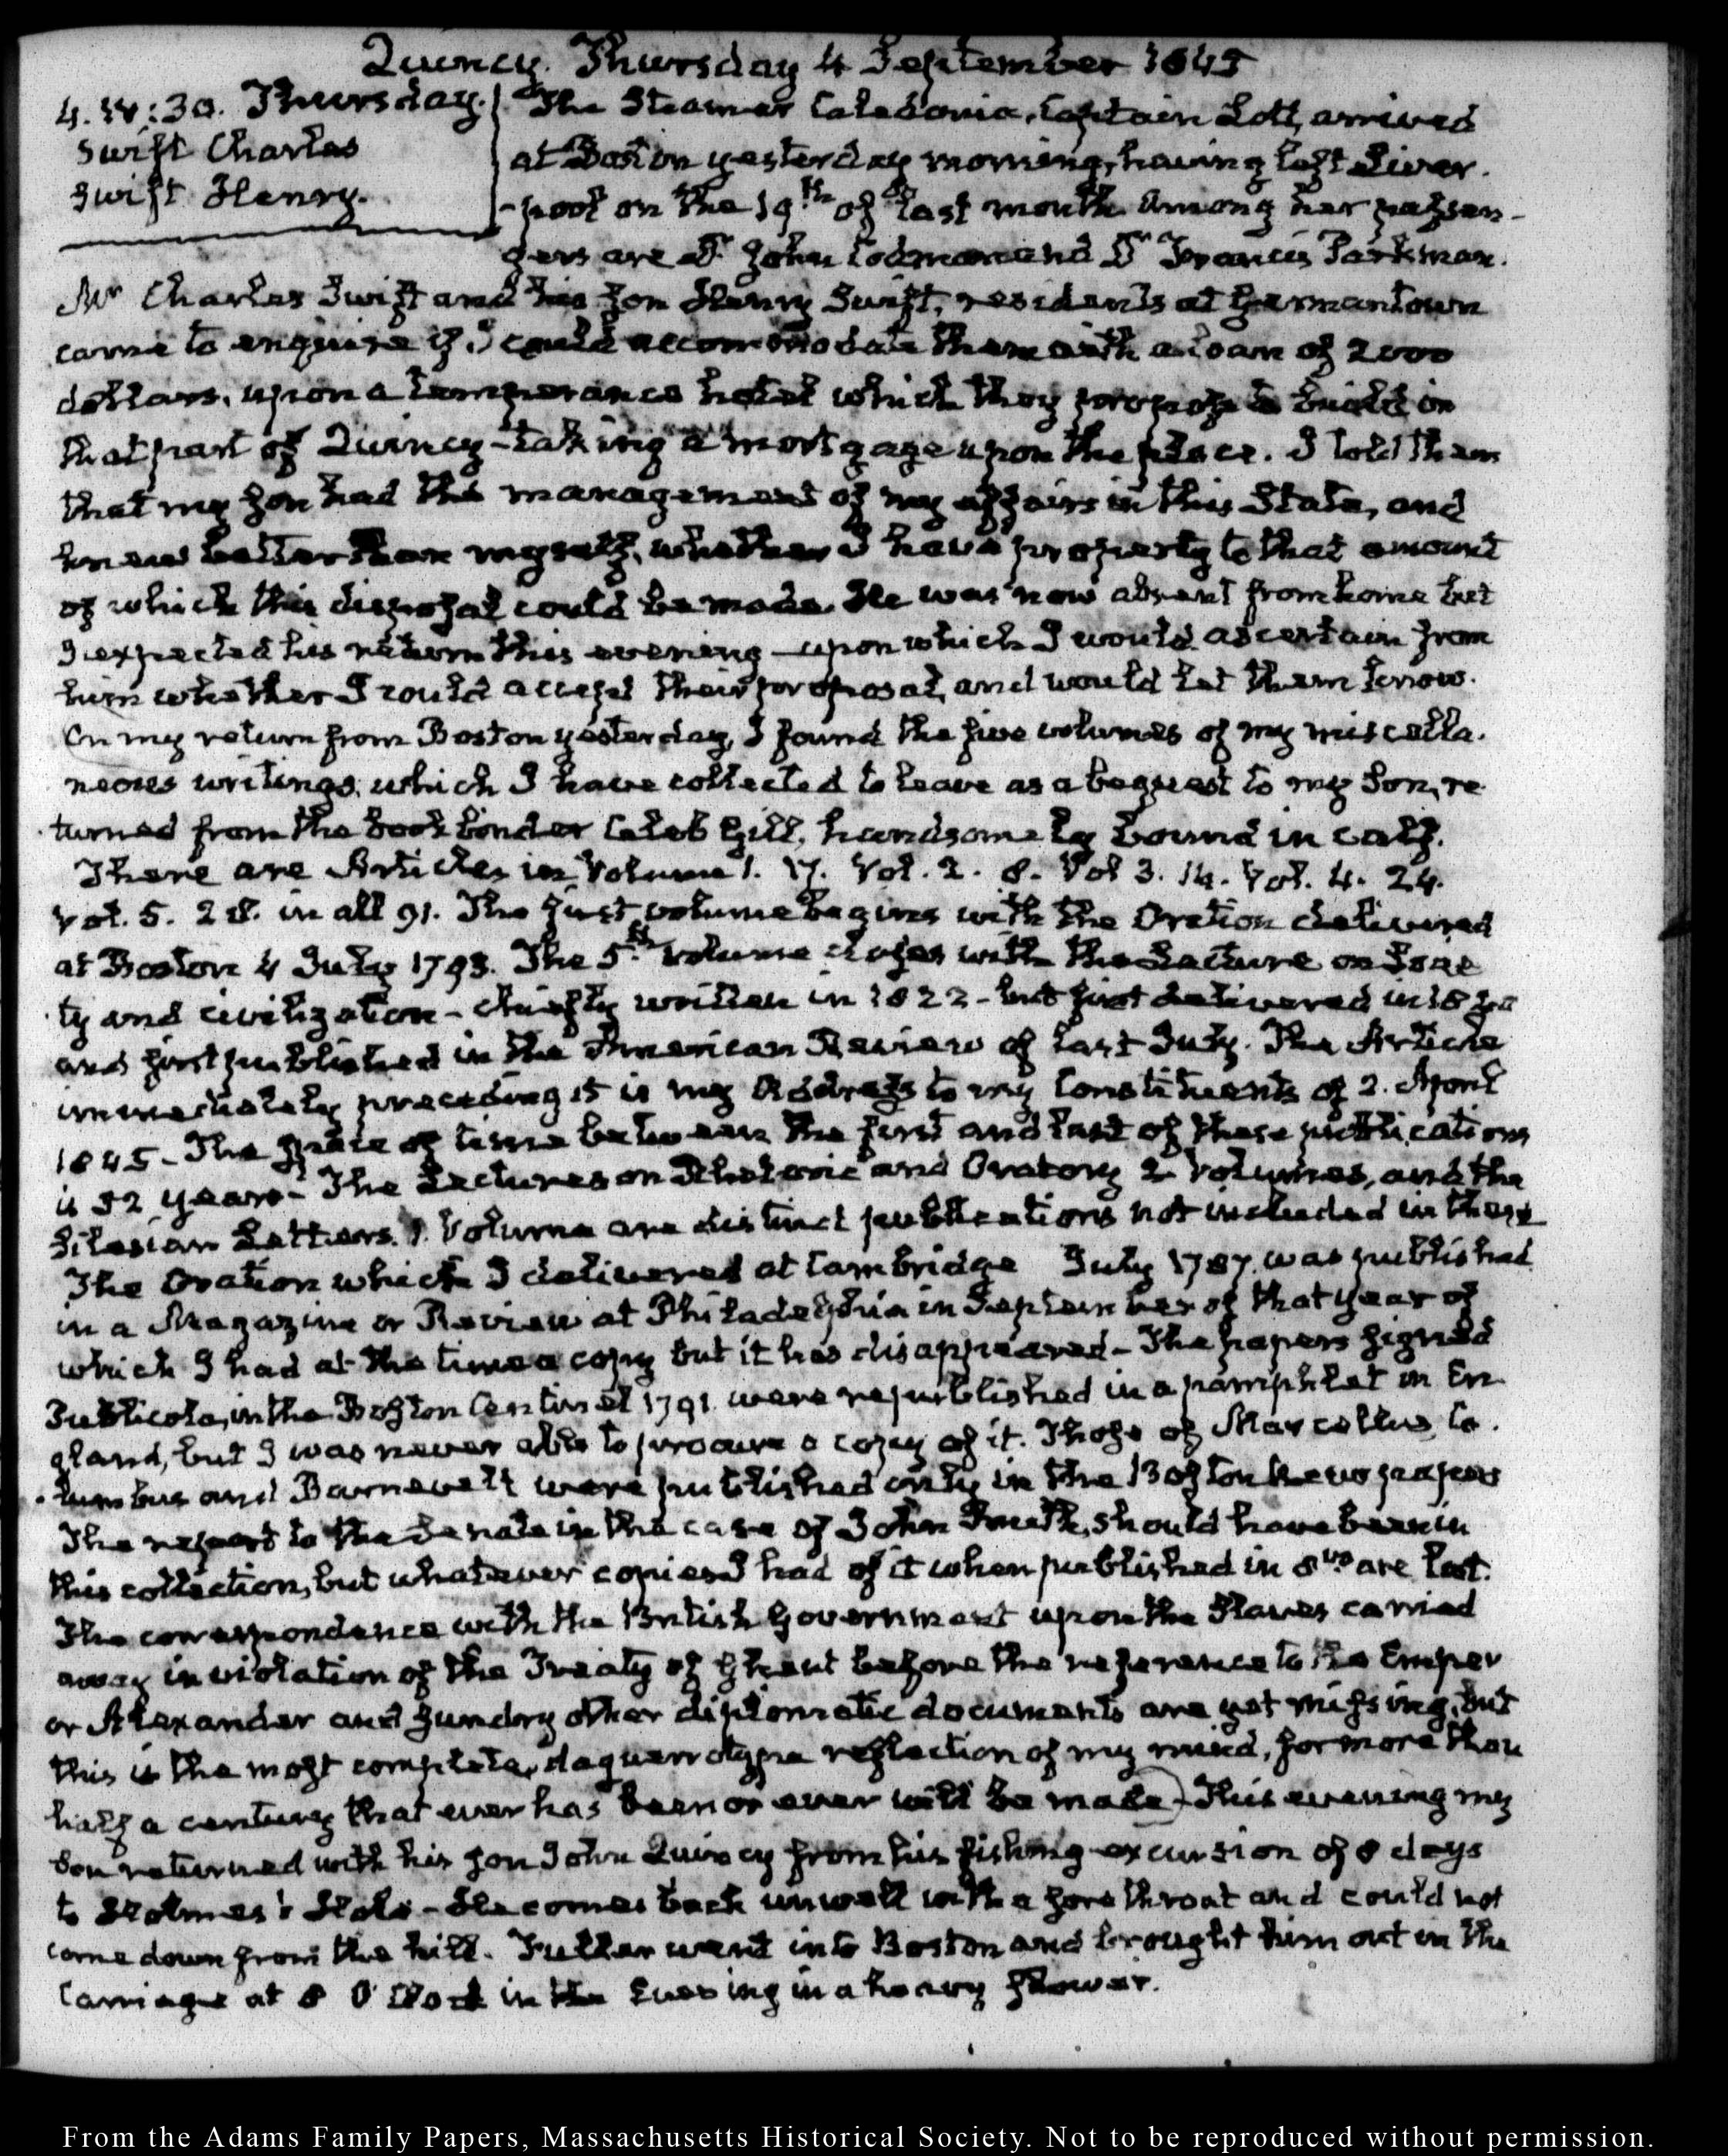 Quincy. Thursday 4 September 1845
4. IV:30. Thursday.
Swift Charles
Swift Henry.
The Steamer Caledonia, Captain Lott, arrived
at Boston yesterday morning, having left Liver-
-pool on the 19th of last month. Among her passen-
gers are Dr John Codman and Dr Francis Parkman.
Mr Charles Swift and his son Henry Swift, residents at Germantown
came to enquire if I could accommodate them with a loan of 2000
dollars, upon a temperance hotel which they propose to build in
that part of Quincy - taking a mortgage upon the place. I told them
that my Son had the management of my affairs in this State, and
knew better than myself, whether I have property to that amount
of which this disposal could be made. He was now absent from home but
I expected his return this evening - upon which I would ascertain from
him whether I could accept their proposal, and would let them know.
On my return from Boston yesterday, I found the five volumes of my miscella-
neous writings, which I have collected to leave as a bequest to my Son, re-
turned from the bookbinder Caleb Gill, handsomely bound in calf.
There are Articles in Volume 1. 17. Vol. 2. 8. Vol 3. 14. Vol. 4. 24.
Vol. 5. 28. in all 91. The first volume begins with the Oration delivered
at Boston 4 July 1793. The 5th volume closes with the Lecture on Socie
ty and civilization - chiefly written in 1822 - but first delivered in 1840
and first published in the American Review of last July. The Article
immediately preceding it is my Address to my Constituents of 2. April
1845 - The space of time between the first and last of these publications
is 52 years - The Lectures on Rhetoric and Oratory 2 Volumes, and the
Silesian Letters. 1. Volume are distinct publications not included in these
The Oration which I delivered at Cambridge July 1787. was published
in a Magazine or Review at Philadelphia in September of that year of
which I had at the time a copy but it has disappeared - The papers signed
Publicola, in the Boston Centinel 1791 were republished in a pamphlet in En-
gland, but I was never able to procure a copy of it. Those of Marcellus, Co-
-lumbus and Barnevelt were published only in the Boston Newspapers
The report to the Senate in the case of John Smith, should have been in
this collection, but whatever copies I had of it when published in 8vo are lost.
The correspondence with the British Government upon the Slaves carried
away in violation of the Treaty of Ghent before the reference to the Emper
or Alexander and sundry other diplomatic documents are yet missing, but
this is the most complete, daguerrotype reflection of my mind, for more than
half a century that ever has been or ever will be made) - This evening my
Son returned with his son John Quincy from his fishing excursion of 8 days
to Holmes's Hole - He comes back unwell with a sore throat and could not
come down from the hill. Fuller went into Boston and brought him out in the
Carriage at 8 O'Clock in the Evening in a heavy shower.
From the Adams Family Papers, Massachusetts Historical Society. Not to be reproduced without permission.